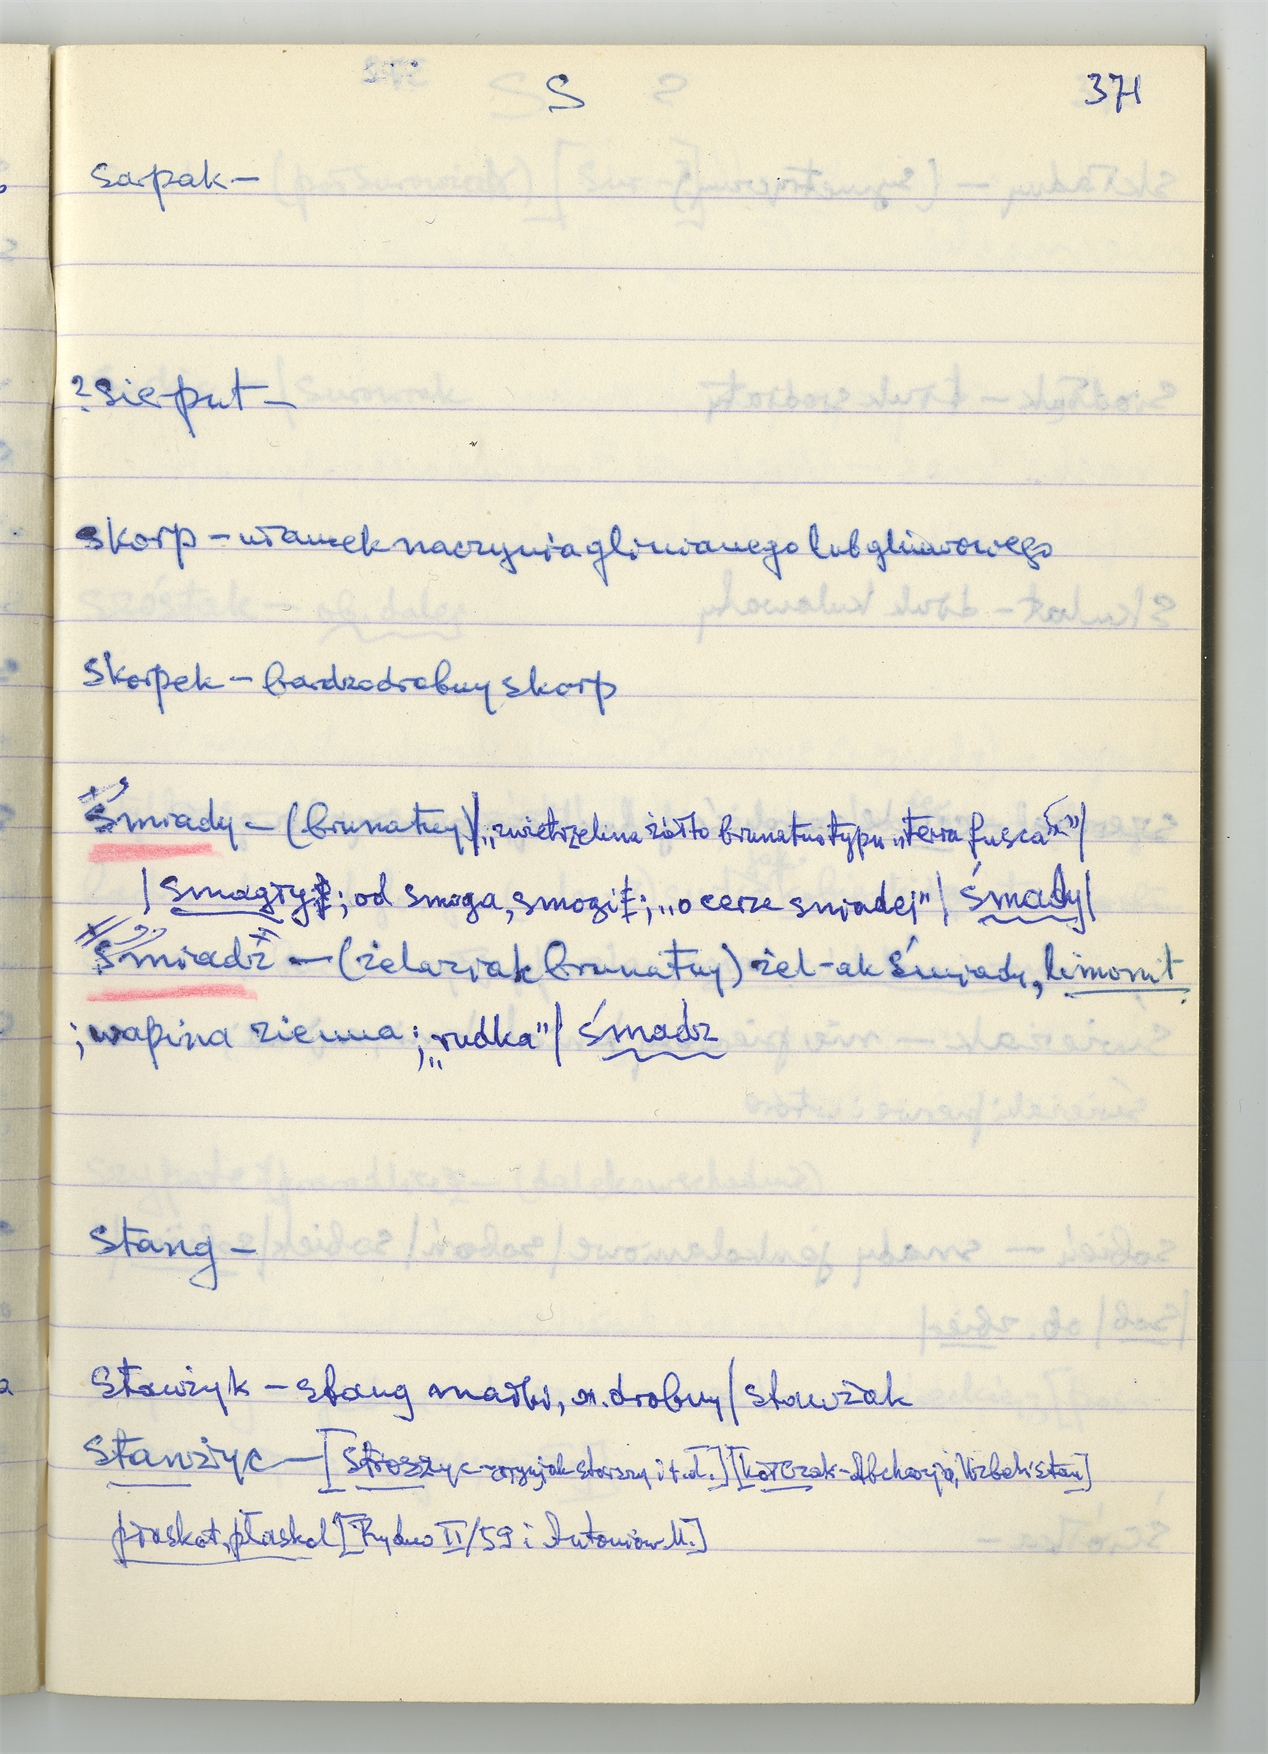 S 371
sarpak –
? sierput –
skorp – ułamek naczynia glinianego lub gliniwowego
skorpek – bardzo drobny skorp
śmiady – (brunatny) / „zwietrzelina żółto brunatna typu „terra fusca” /
/ smagły; od smaga, smozi; „o cerze sniadej” / śmady /
śmiadź – (żelaziak brunatny) żel-ak śmiady, limonit
; wapina ziemna; „rudka” / śmadz
stang –
stawżyk – stang małki, m. drobny / stawżak
stanżyc – [stroszyc – starszy i t.d.] [kołczak – Abchazja, Uzbekistan]
płaskot, płaskol [Rydno II/59 i Antoniów M.]